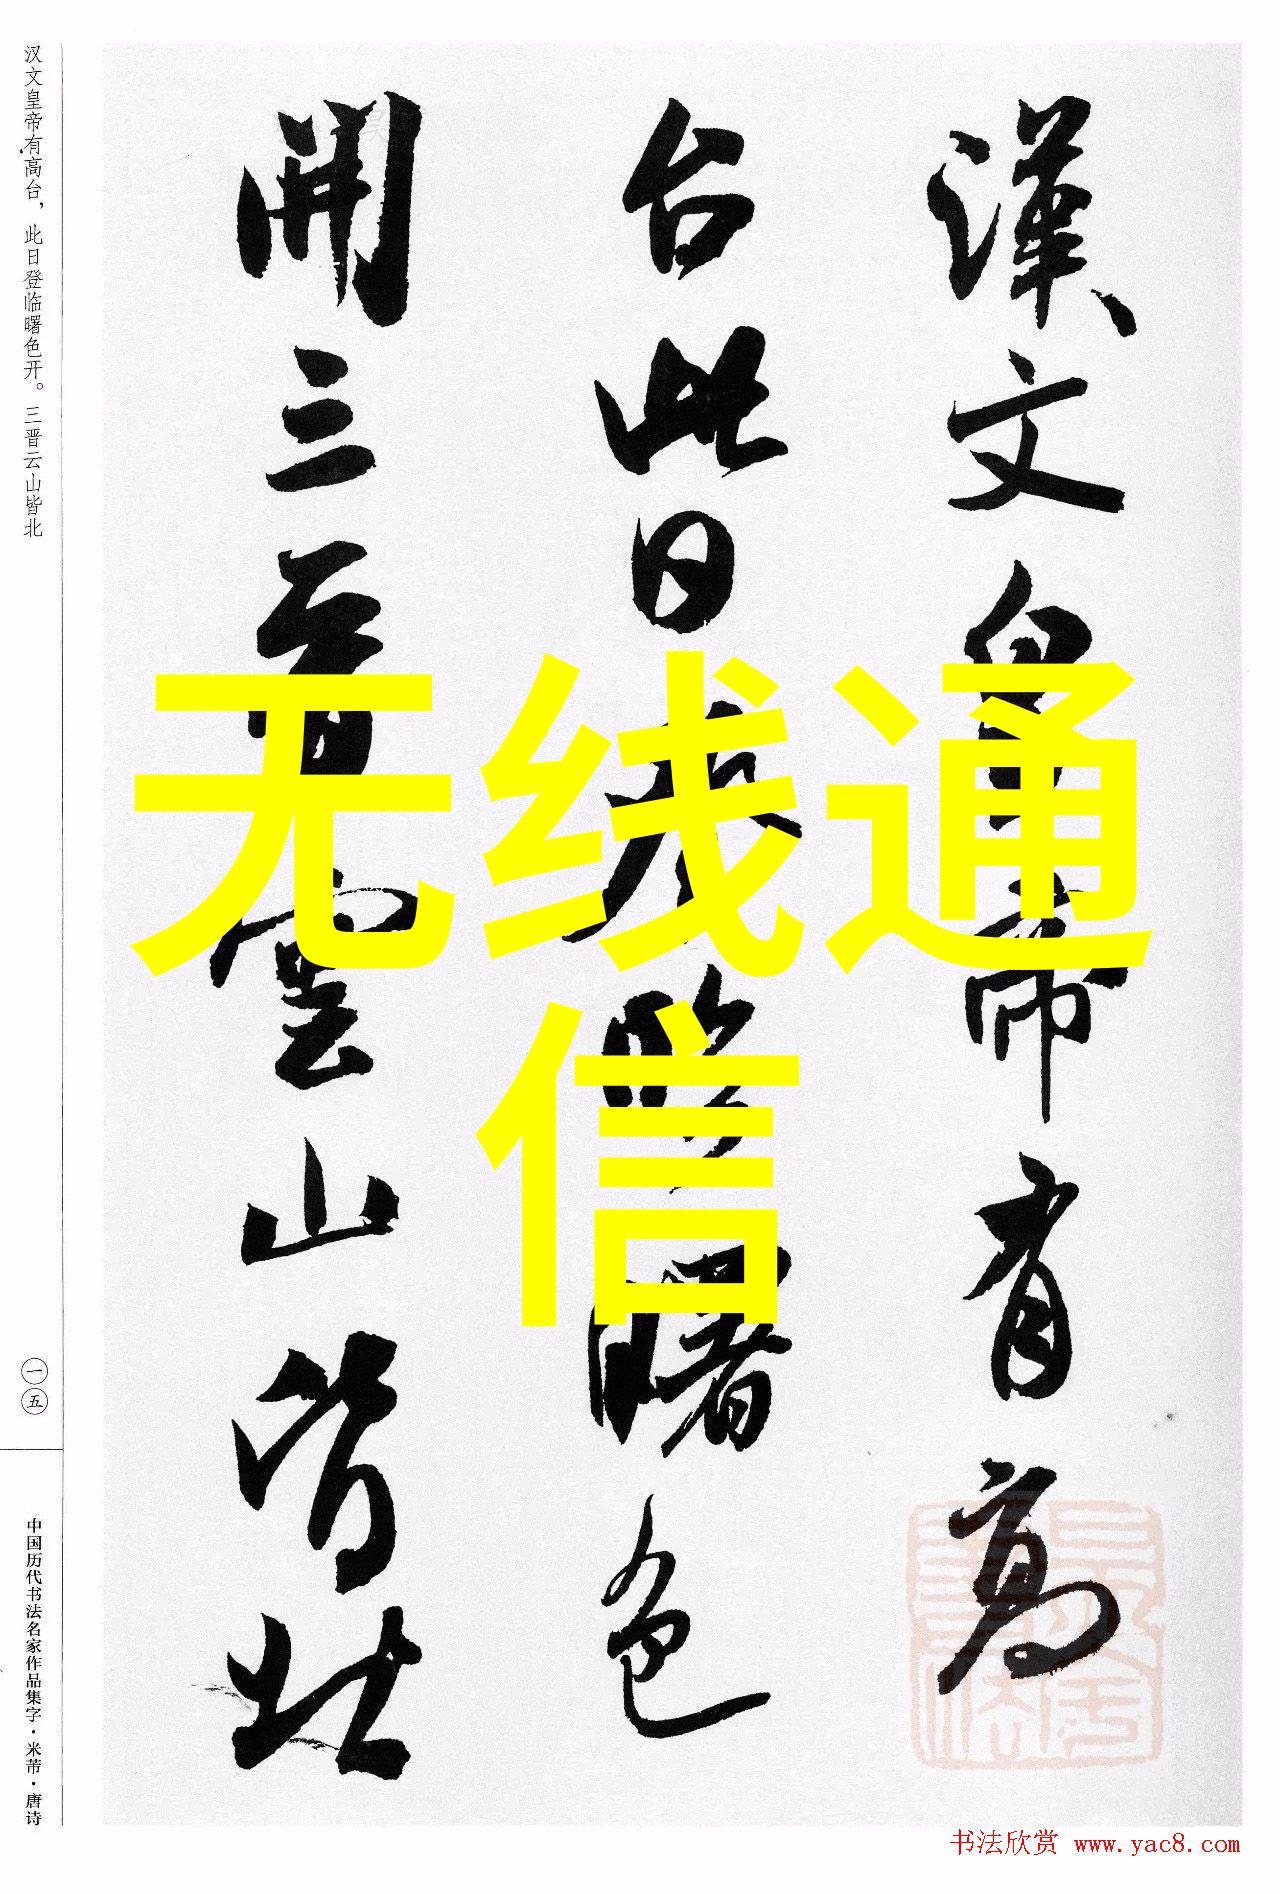 漢文皇帝有高
台此日登臨曙色
開三晉雲山皆北
无线通
信
汉文皇帝有高台，此日登临曙色开。三晋云山皆北
一五
中国历代书法名家作品集字·米芾·唐诗
书法欣赏 www.yac8.com